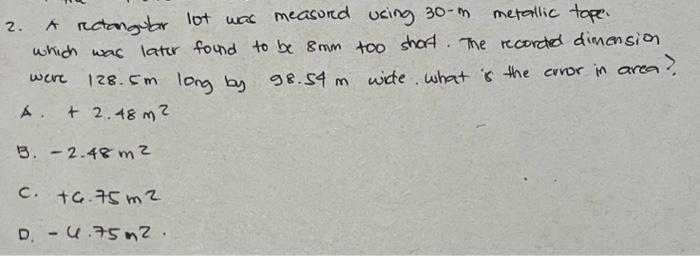 2. A rectangular lot was measured using 30-m metallic tape.
which was later found to be 8mm too short. The recorded dimension
were 128.5m long by 98.54 m wide. what is the error in area?
A. + 2.48 m2
B. - 2.48 m2
C. +6.75 m2
D. - 6.75 m2.